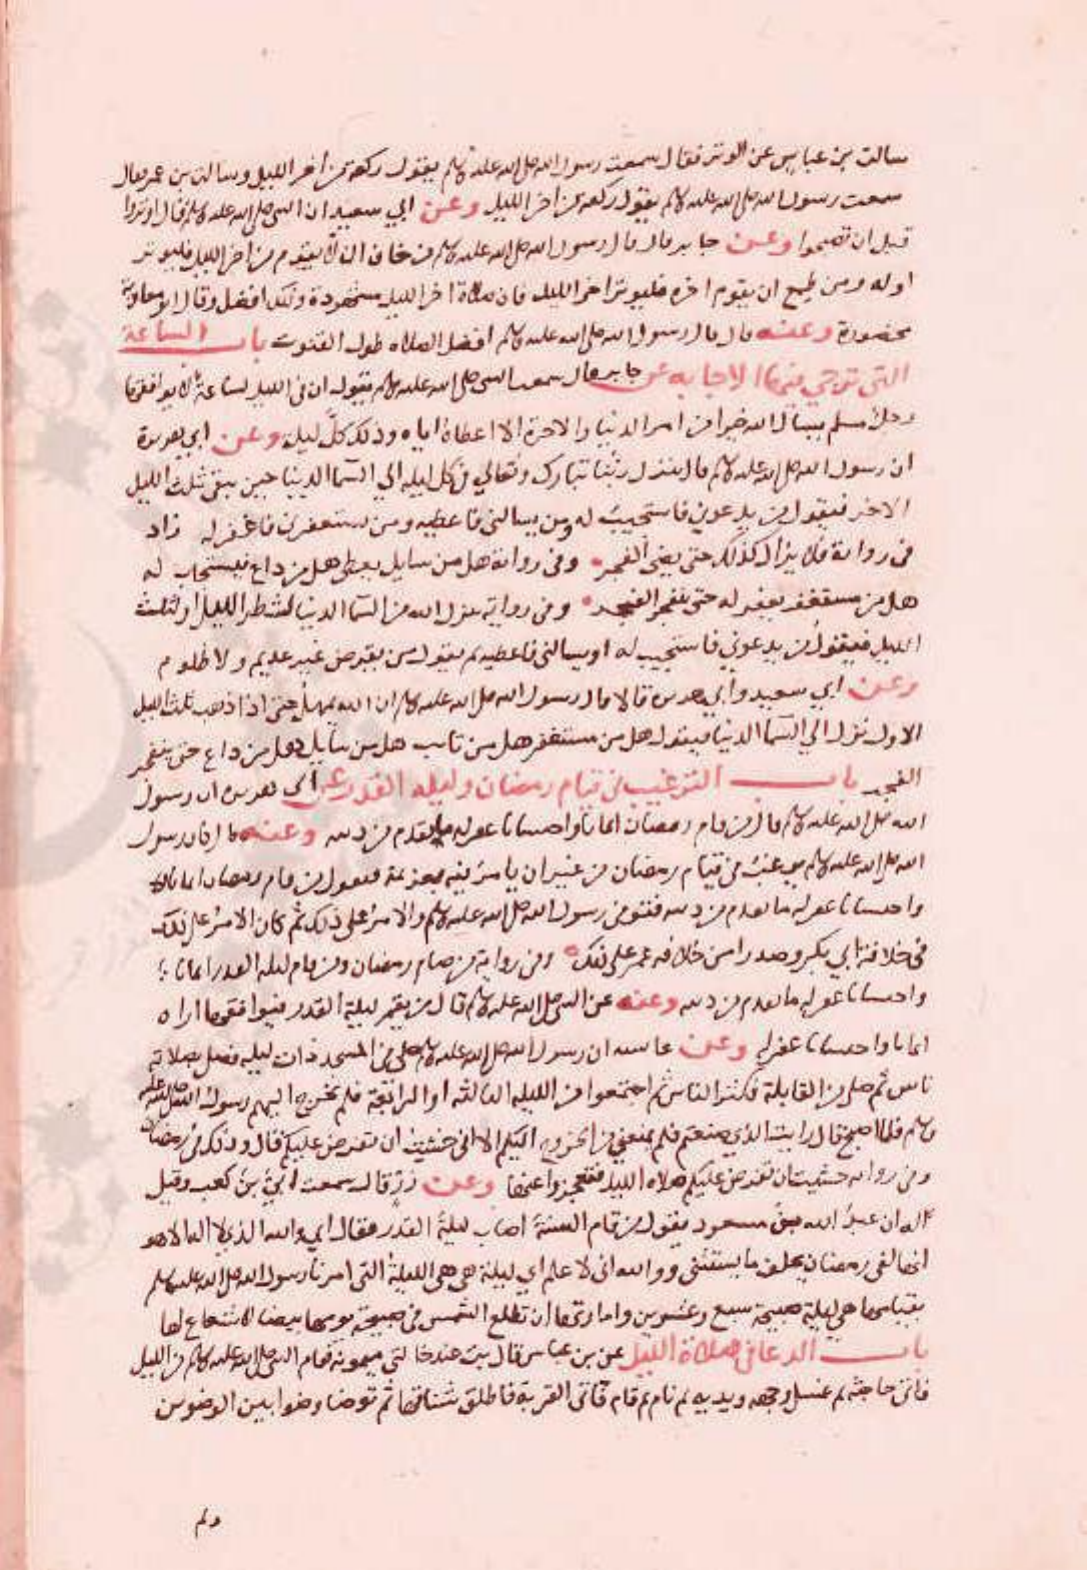 سالت بن عباس عن الوتر فقال سمعت رسول الله صلى الله عليه وسلم يقول ركعة من اخر الليل وسالت بن عمر فقال
سمعت رسول الله صلى الله عليه وسلم يقول ركعة من اخر الليل وعن ابي سعيد ان النبي صلى الله عليه وسلم قال اوتروا
قبل ان تصبحوا وعن جابر قال قال رسول الله صلى الله عليه وسلم من خاف ان لا يقوم من اخر الليل فليوتر
اوله ومن طمع ان يقوم اخره فليوتر اخر الليل فان صلاة اخر الليل مشهودة وذلك افضل وقال ابو معاوية
محضورة وعنه قال قال رسول الله صلى الله عليه وسلم افضل الصلاه طول القنوت باب الساعة
التي ترجي فيها الاجابه عن جابر قال سمعت النبي صلى الله عليه وسلم يقول ان في الليل لساعة لا يوافقها
رجل مسلم يسال الله خيرا من امر الدنيا والاخرة الا اعطاه اياه وذلك كل ليلة وعن ابي هريرة
ان رسول الله صلى الله عليه وسلم قال ينزل ربنا تبارك وتعالي في كل ليله الي السما الدنيا حين يبقى ثلث الليل
الاخر فيقول من يدعوني فاستجيب له ومن يسالني فاعطيه ومن يستغفرني فاغفر له زاد
في رواية فلا يزال كذلك حتى يضي الفجر وفي رواية هل من سايل يعطى هل من داع فيستجاب له
هل من مستغفر يغفر له حتى ينفجر الفجر وفي رواية ينزل الله من السما الدنيا لشطر الليل او لثلث
الليل فيقول من يدعوني فاستجيب له او يسالني فاعطيه ثم يقول من يقرض غير عديم ولا ظلوم
وعن ابي سعيد وابي هريرة قالا قال رسول الله صلى الله عليه وسلم ان الله يمهل حتى اذا ذهب ثلث الليل
الاول نزل الي السما الدنيا فيقول هل من مستغفر هل من تايب هل من سايل هل من داع حتى ينفجر
الفجر باب الترغيب في قيام رمضان وليله القدر عن ابي هريره ان رسول
الله صلى الله عليه وسلم قال من قام رمضان ايمانا واحتسابا غفر له ما تقدم من ذنبه وعنه كان رسول
الله صلى الله عليه وسلم يرغب في قيام رمضان من غير ان يامر فيه بعزيمة فيقول من قام رمضان ايمانا
واحتسابا غفر له ما تقدم من ذنبه فتوفي رسول الله صلى الله عليه وسلم والامر على ذلك ثم كان الامر على ذلك
في خلافة ابي بكر وصدرا من خلافه عمر على ذلك وفي رواية من صام رمضان ومن قام ليله القدر ايمانا
واحتسابا غفر له ما تقدم من ذنبه وعنه عن النبي صلى الله عليه وسلم قال من يقم ليلة القدر فيوافقها اراه
ايمانا واحتسابا غفر له وعن عائشه ان رسول الله صلى الله عليه وسلم صلى في المسجد ذات ليله فصلى بصلاته
ناس ثم صلى من القابلة فكثر الناس ثم اجتمعوا من الليله الثالثه او الرابعة فلم يخرج اليهم رسول الله صلى الله عليه
وسلم فلما اصبح قال رايت الذي صنعتم فلم يمنعني من الخروج اليكم الا اني خشيت ان تفرض عليكم قال وذلك في رمضان
وفي روايه خشيت ان تفرض عليكم صلاه الليل فتعجزوا عنها وعن زر قال سمعت ابي بن كعب وقيل
له ان عبد الله بن مسعود يقول من قام السنة اصاب ليلة القدر فقال ابي والله الذي لا اله الا هو
انها لفي رمضان يحلف ما يستثني ووالله اني لاعلم اي ليلة هي هي الليلة التي امرنا رسول الله صلى الله عليه وسلم
بقيامها هي ليلة صبيحة سبع وعشرين وامارتها ان تطلع الشمس في صبيحة يومها بيضا لا شعاع لها
باب الدعا في صلاة الليل عن بن عباس قال بت عند خالتي ميمونة فقام النبي صلى الله عليه وسلم من الليل
فاتى حاجته ثم غسل وجهه ويديه ثم نام ثم قام فاتى القربة فاطلق شناقها ثم توضا وضوا بين الوضوين
ولم